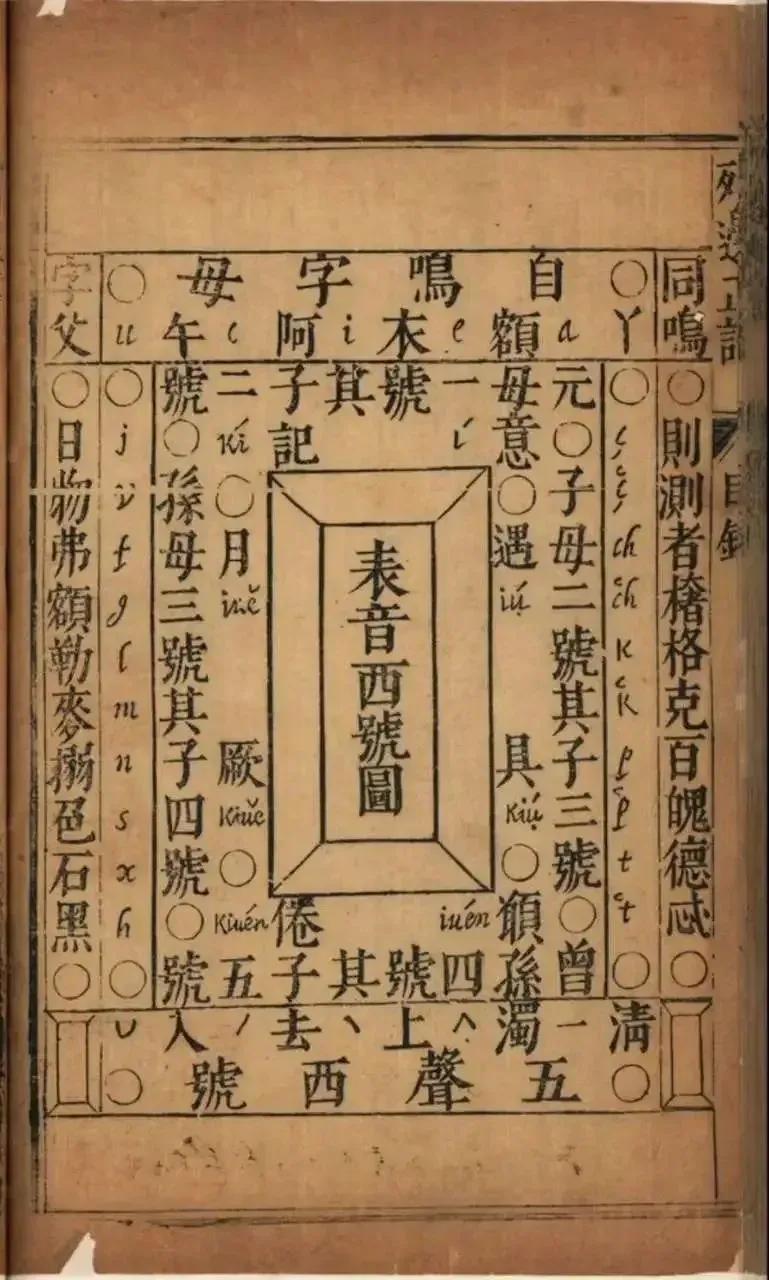 目錄
同鳴字父
○則測者撦格克百魄德忒○
○ ç ‘ç ch ‘ch K ‘K p ‘p t ‘t ○
○自鳴字母○
丫 a 額 e 衣 i 阿 o 午 u
元母一號其子二號
意 í 記 Kí
○子母二號其子三號○
遇 iụ́ 具 Kiụ́
○孫母三號其子四號○
月 iuě 厥 Kiuě
曾孫四號其子五號
願 iuén 倦 Kiuén
表音西號圖
○ j v f g l m n s x h ○
○日物弗額勒麥搦色石黑○
清 一 濁 ^ 上 ˋ 去 ˊ 入 ˇ
○五聲西號○